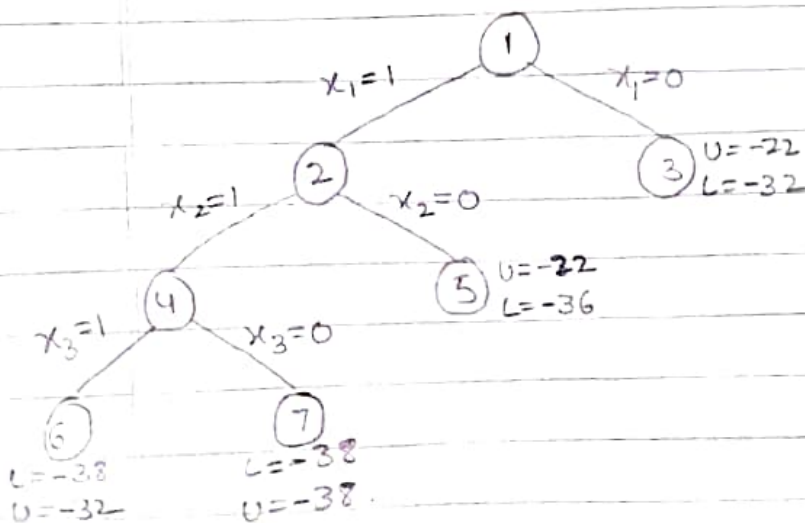 1
x₁=1 x₁=0
2 3 U=-22
L=-32
x₂=1 x₂=0
4 5 U=-22
L=-36
x₃=1 x₃=0
6 7
L=-38 L=-38
U=-32 U=-38